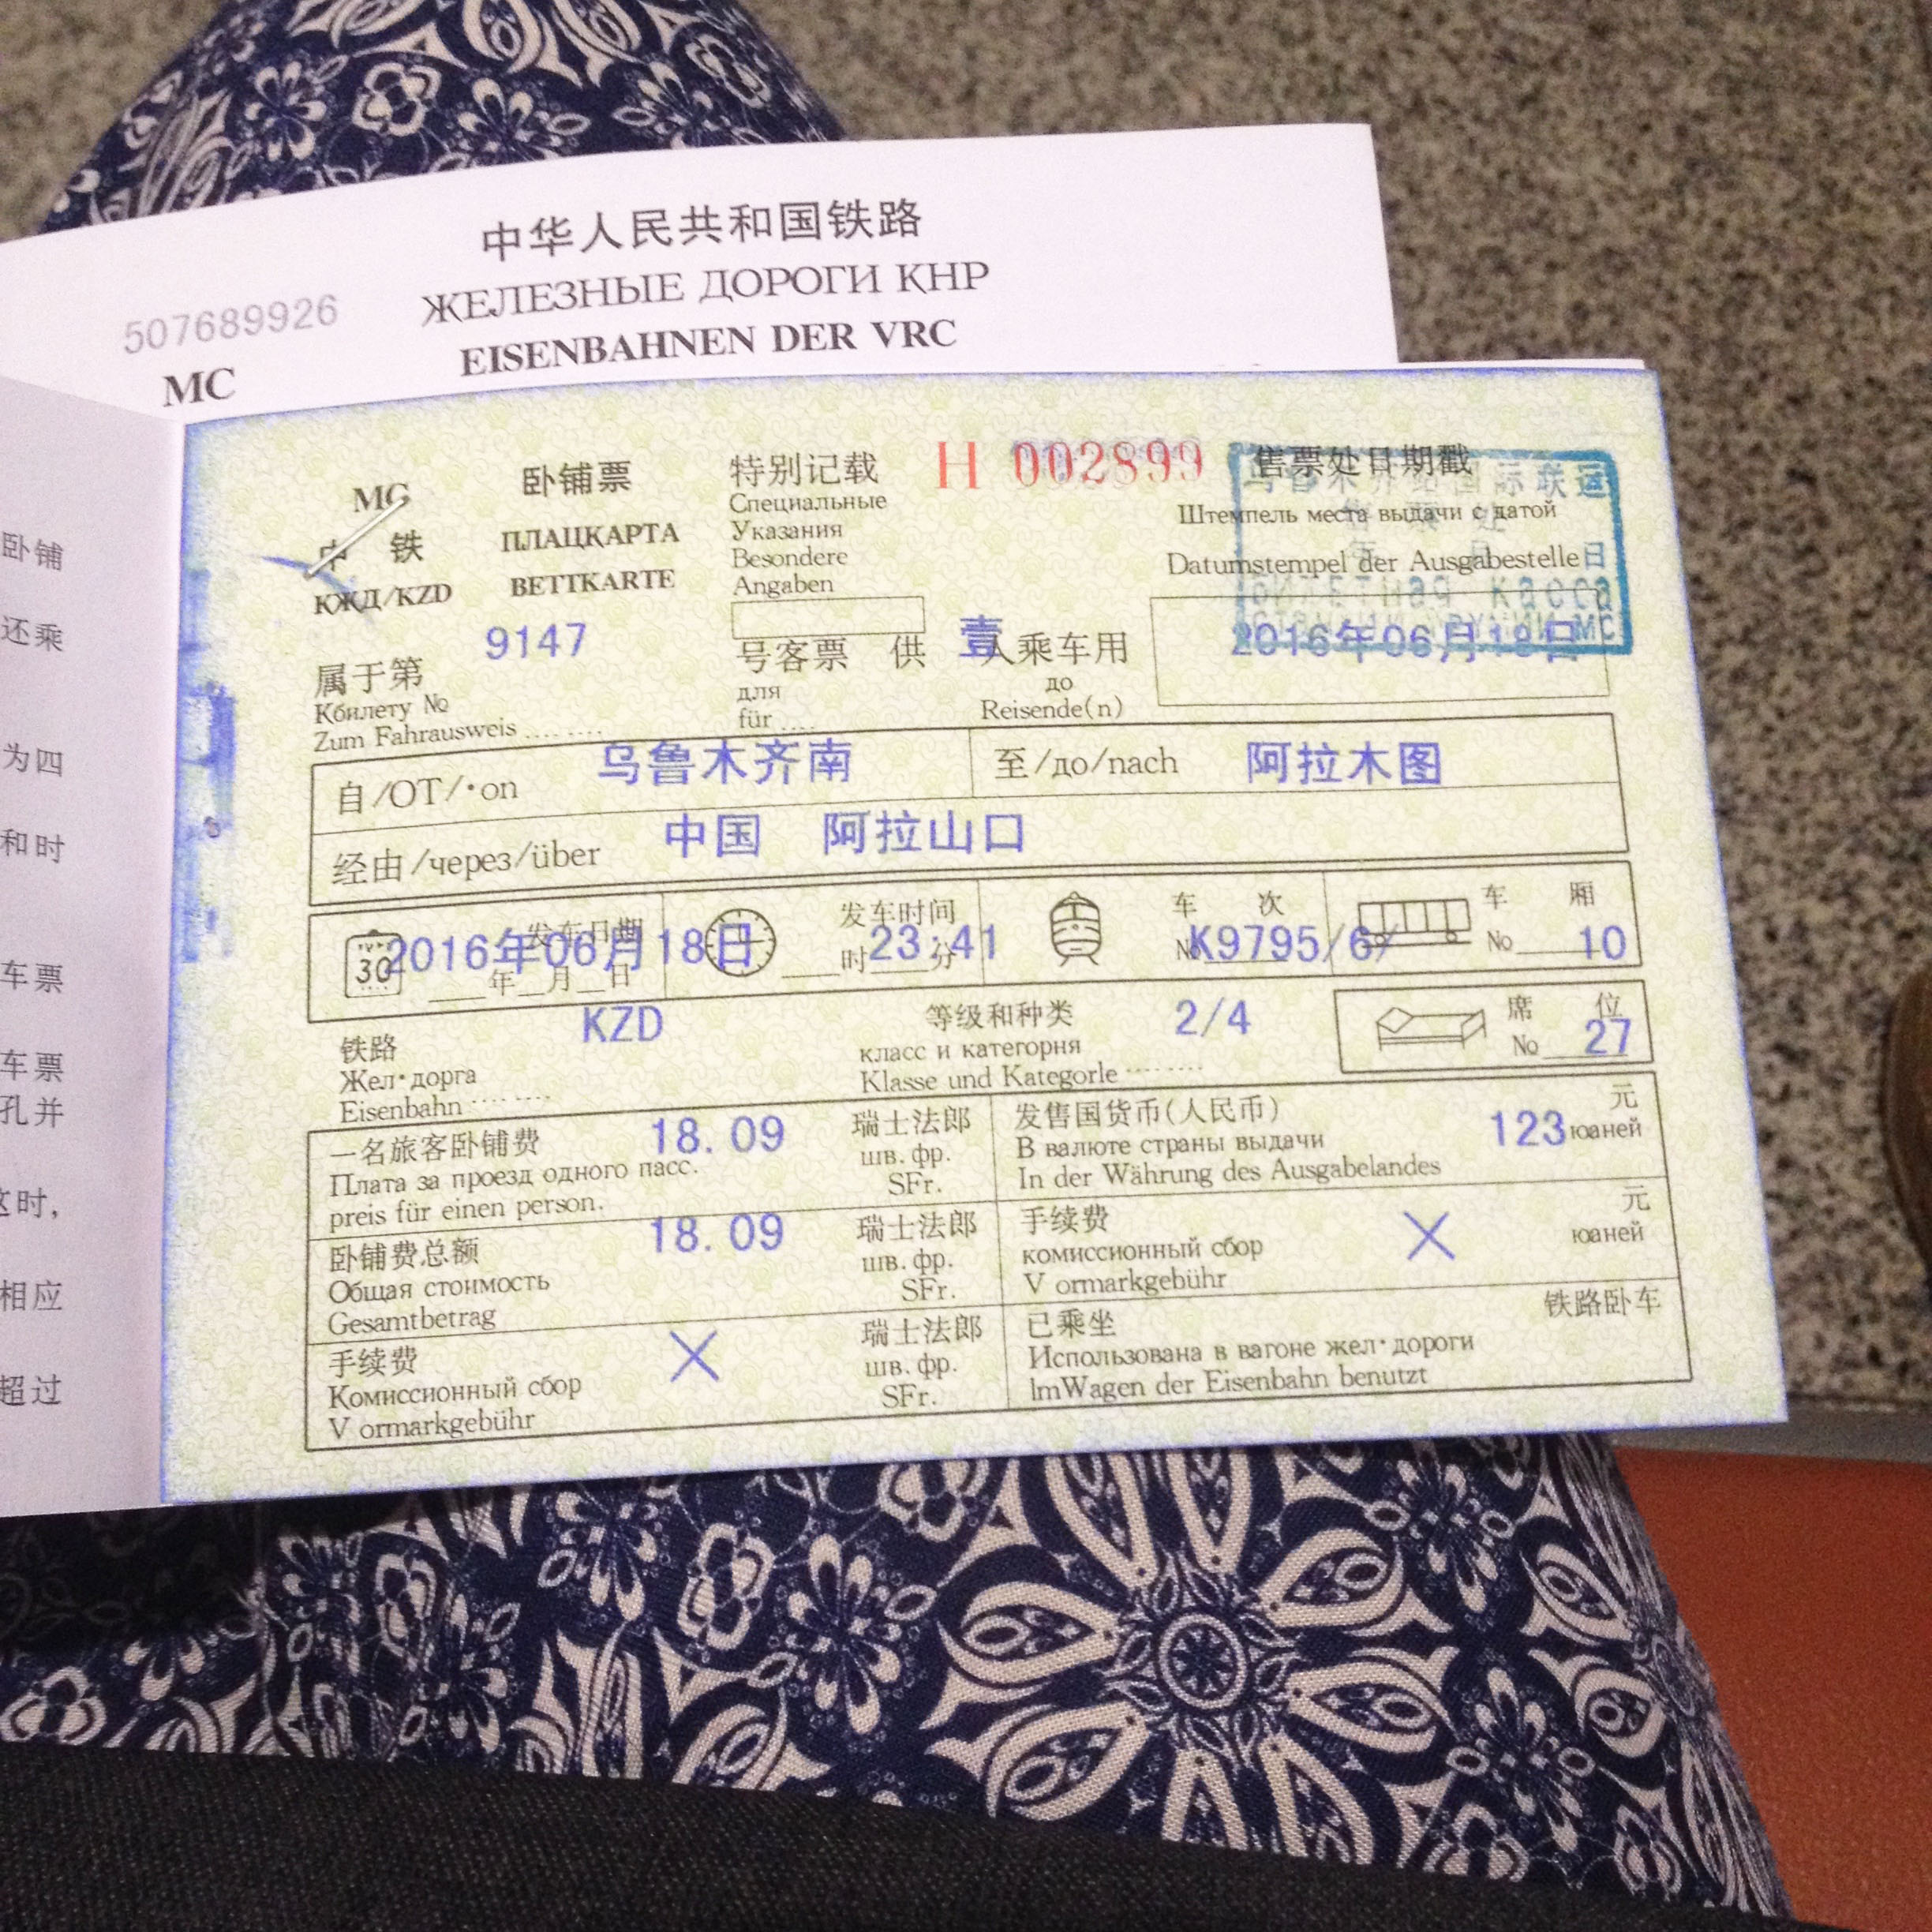 中华人民共和国铁路
ЖЕЛЕЗНЫЕ ДОРОГИ ҚНР
507689926
EISENBAHNEN DER VRC
MC
卧铺
还乘
为四
和时
车票
车票
孔并
这时,
相应
超过
MC
中 铁
КЖД/KZD
卧铺票
ПЛАЦКАРТА
BETTKARTE
特别记载
Специальные
Указания
Besondere
Angaben
H 002899
售票处日期戳
Штемпель места выдачи с датой
Datumstempel der Ausgabestelle
国际联运
日
билетная касса
MC
2016年06月18日
属于第
Кбилету №
Zum Fahrausweis ........
9147
号客票 供 壹 人乘车用
для до
für .... Reisende(n)
自/ОТ/·on 乌鲁木齐南 至/до/nach 阿拉木图
经由/через/über 中国 阿拉山口
发车日期 2016年06月18日
__年__月__日
30
发车时间
__时__分
23:41
车 次
№ K9795/6/
车 厢
№ 10
铁路 KZD
Жел·дорга
Eisenbahn ........
等级和种类 2/4
класс и категорня
Klasse und Kategorle ........
席 位
№ 27
一名旅客卧铺费 18.09 瑞士法郎
Плата за проезд одного пасс. шв.фр.
preis für einen person. SFr.
发售国货币(人民币) 元
В валюте страны выдачи 123 юаней
In der Währung des Ausgabelandes
卧铺费总额 18.09 瑞士法郎
Общая стоимость шв.фр.
Gesamtbetrag SFr.
手续费 × 元
комиссионный сбор юаней
V ormarkgebühr
手续费 × 瑞士法郎
Комиссионный сбор шв.фр.
V ormarkgebühr SFr.
已乘坐 铁路卧车
Использована в вагоне жел·дороги
lmWagen der Eisenbahn benutzt